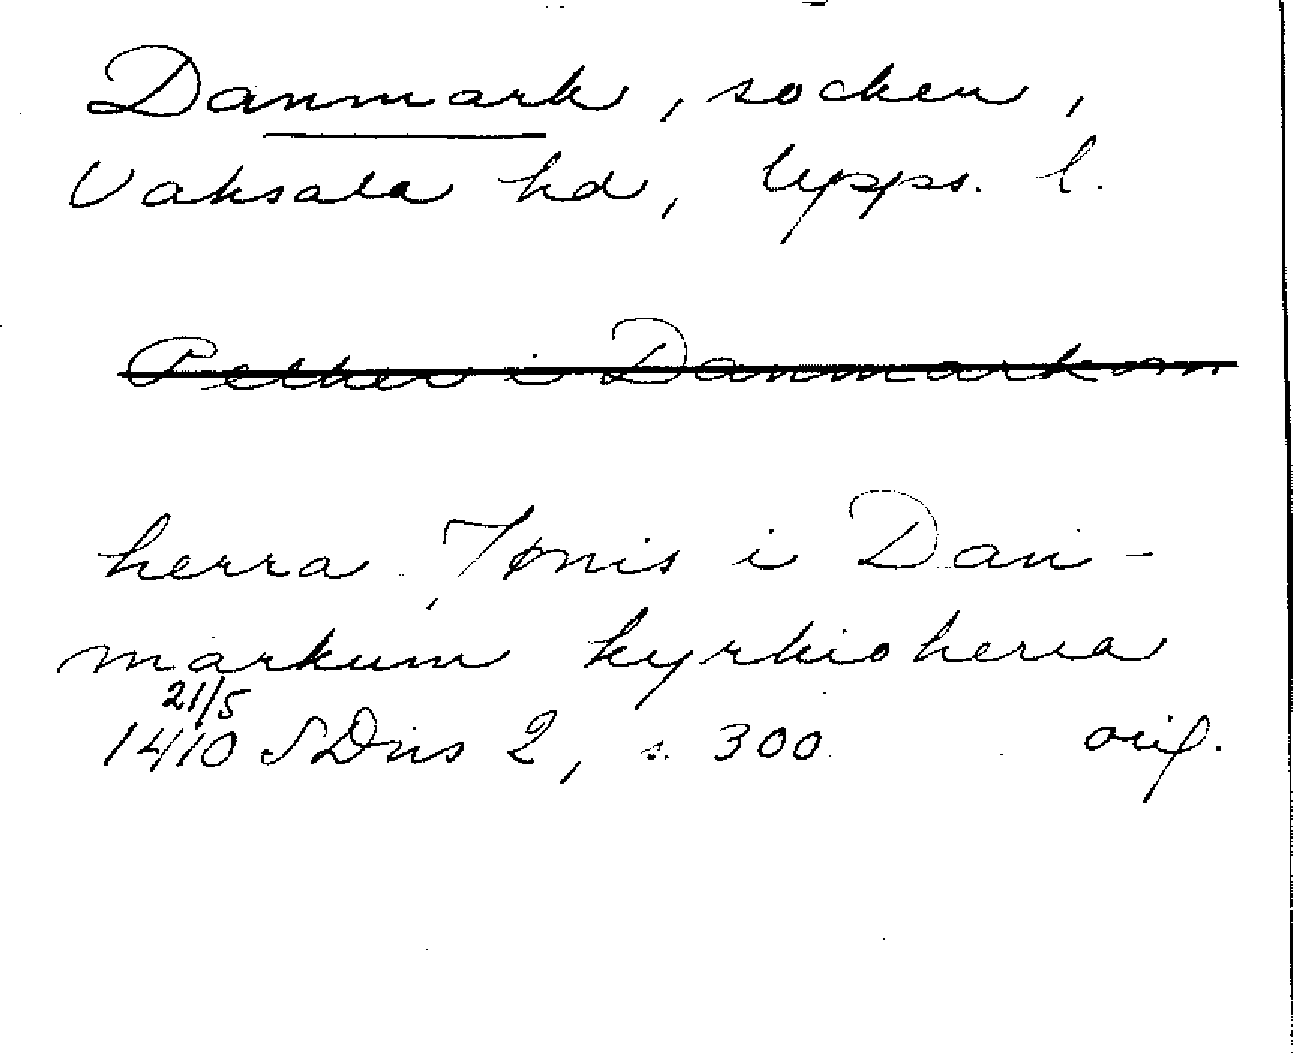 Danmark, socken,
Vaksala hd, Upps. l.
Pether i Danmarkom
herra Tønis i Dan-
markum kyrkioherra
21/5
1410 SDns 2, s. 300. orig.